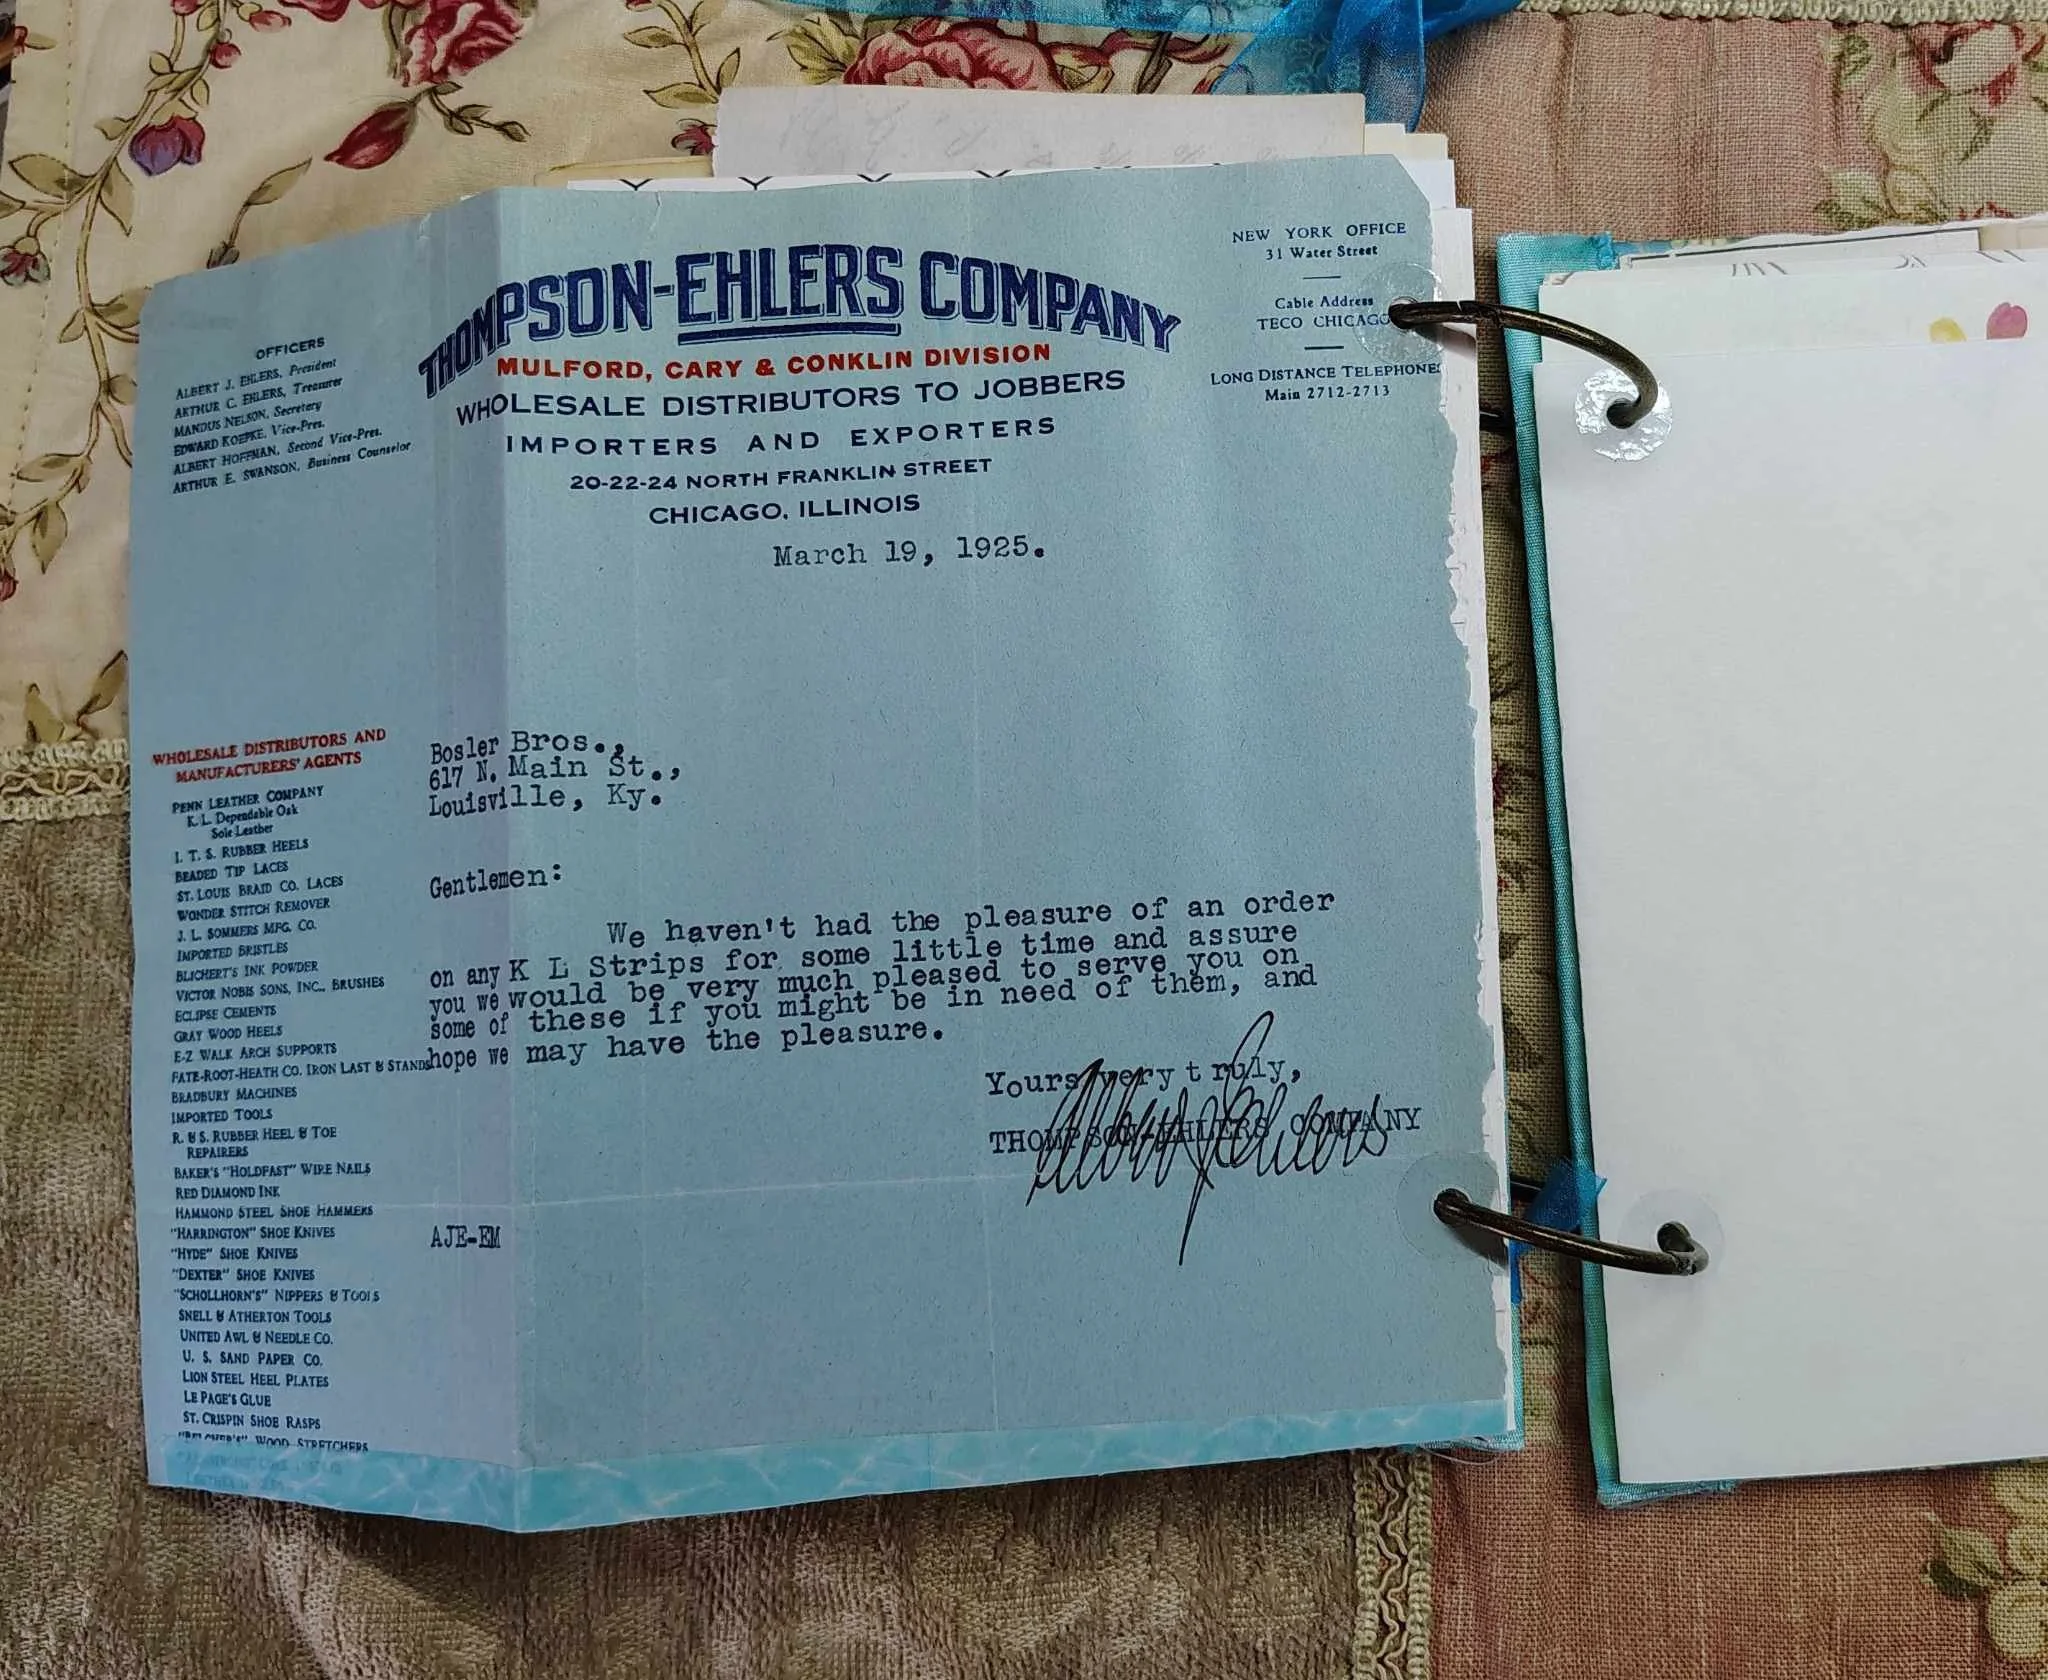 THOMPSON-EHLERS COMPANY
MULFORD, CARY & CONKLIN DIVISION
WHOLESALE DISTRIBUTORS TO JOBBERS
IMPORTERS AND EXPORTERS
20-22-24 NORTH FRANKLIN STREET
CHICAGO, ILLINOIS
NEW YORK OFFICE
31 Water Street
Cable Address
TECO CHICAGO
LONG DISTANCE TELEPHONES
Main 2712-2713
OFFICERS
ALBERT J. EHLERS, President
ARTHUR C. EHLERS, Treasurer
MANDUS NELSON, Secretary
EDWARD KOEPKE, Vice-Pres.
ALBERT HOFFMAN, Second Vice-Pres.
ARTHUR E. SWANSON, Business Counselor
March 19, 1925.
WHOLESALE DISTRIBUTORS AND
MANUFACTURERS' AGENTS
PENN LEATHER COMPANY
K. L. Dependable Oak
Sole Leather
I. T. S. RUBBER HEELS
BEADED TIP LACES
ST. LOUIS BRAID CO. LACES
WONDER STITCH REMOVER
J. L. SOMMERS MFG. CO.
IMPORTED BRISTLES
BLICHERT'S INK POWDER
VICTOR NOBIS SONS, INC., BRUSHES
ECLIPSE CEMENTS
GRAY WOOD HEELS
E-Z WALK ARCH SUPPORTS
FATE-ROOT-HEATH CO. IRON LAST & STANDS
BRADBURY MACHINES
IMPORTED TOOLS
R. & S. RUBBER HEEL & TOE
REPAIRERS
BAKER'S "HOLDFAST" WIRE NAILS
RED DIAMOND INK
HAMMOND STEEL SHOE HAMMERS
"HARRINGTON" SHOE KNIVES
"HYDE" SHOE KNIVES
"DEXTER" SHOE KNIVES
"SCHOLLHORN'S" NIPPERS & TOOLS
SNELL & ATHERTON TOOLS
UNITED AWL & NEEDLE CO.
U. S. SAND PAPER CO.
LION STEEL HEEL PLATES
LE PAGE'S GLUE
ST. CRISPIN SHOE RASPS
"BELCHER'S" WOOD STRETCHERS
Bosler Bros.,
617 N. Main St.,
Louisville, Ky.
Gentlemen:
We haven't had the pleasure of an order
on any K L Strips for some little time and assure
you we would be very much pleased to serve you on
some of these if you might be in need of them, and
hope we may have the pleasure.
Yours very truly,
THOMPSON-EHLERS COMPANY
AJE-EM